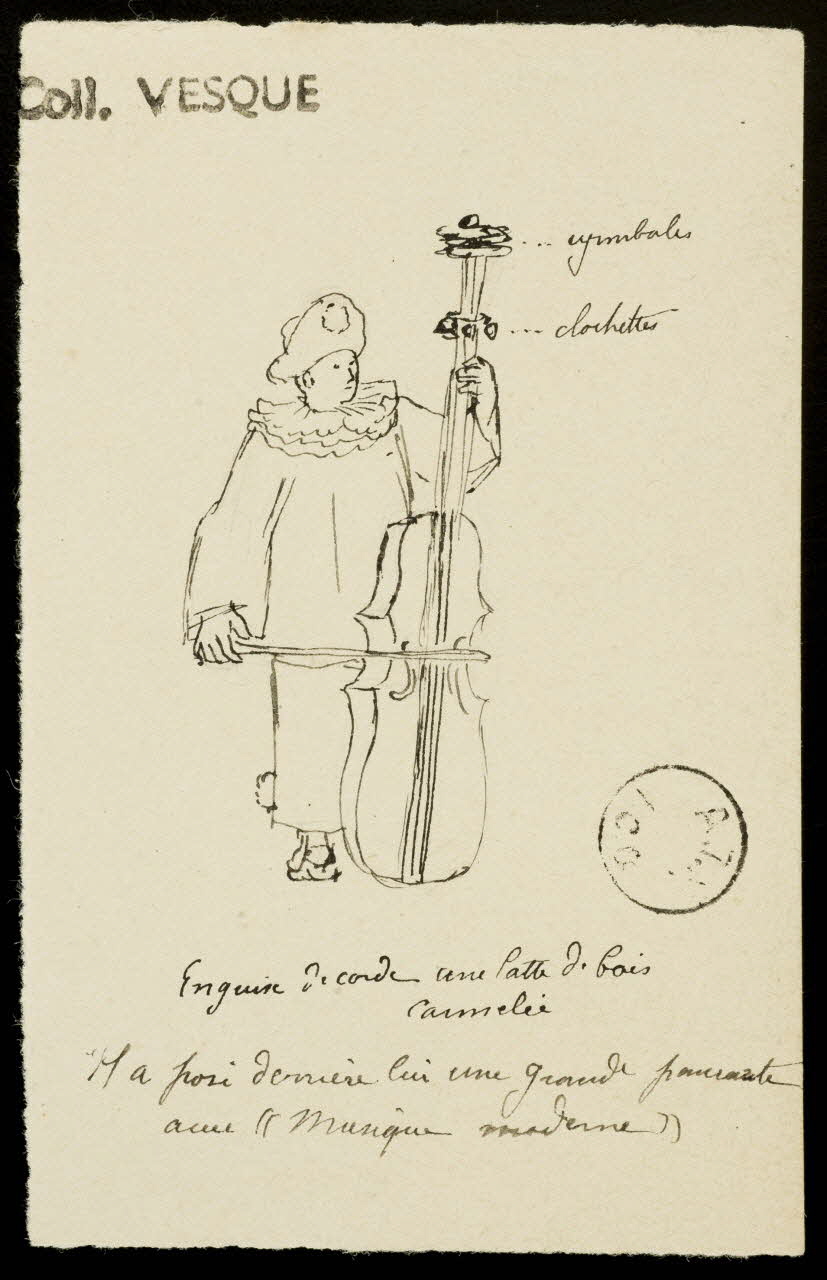 Coll. VESQUE
... cymbales
... clochettes
En guise de corde une latte de bois
cannelée
Il a posé derrière lui une grande pancarte
avec (( Musique moderne ))
A.T.P.